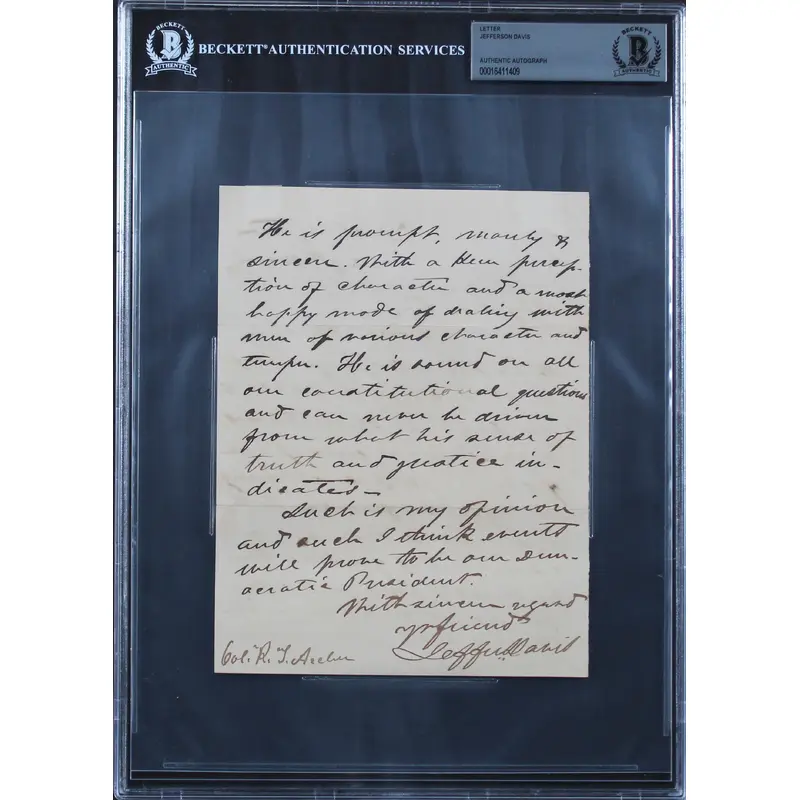 BECKETT
B
AUTHENTIC
BECKETT® AUTHENTICATION SERVICES
LETTER
JEFFERSON DAVIS
AUTHENTIC AUTOGRAPH
00016411409
BECKETT
B
AUTHENTIC
He is prompt, manly &
sincere. With a keen percep-
tion of character and a most
happy mode of dealing with
men of various character and
temper. He is sound on all
our constitutional questions
and can never be driven
from what his sense of
truth and justice in-
dicates—
Such is my opinion
and such I think events
will prove to be our Dem-
ocratic President.
With sincere regard
yr friend
Jeffn. Davis
Col. R. T. Archer